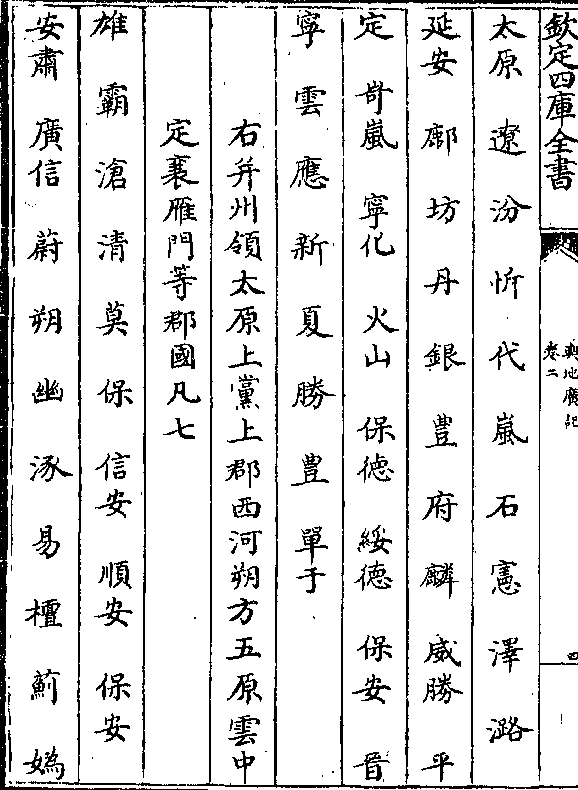 欽定四庫全書
輿地廣記
卷二
四
太原 遼 汾 忻 代 嵐 石 憲 澤 潞
延安 鄜 坊 丹 銀 豐 府 麟 威勝 平
定 岢嵐 寧化 火山 保德 綏德 保安 晉
寧 雲 應 新 夏 勝 豐 單于
右并州領太原上黨上郡西河朔方五原雲中
定襄雁門等郡國凡七
雄 霸 滄 清 莫 保 信安 順安 保安
安肅 廣信 蔚 朔 幽 涿 易 檀 薊 媯